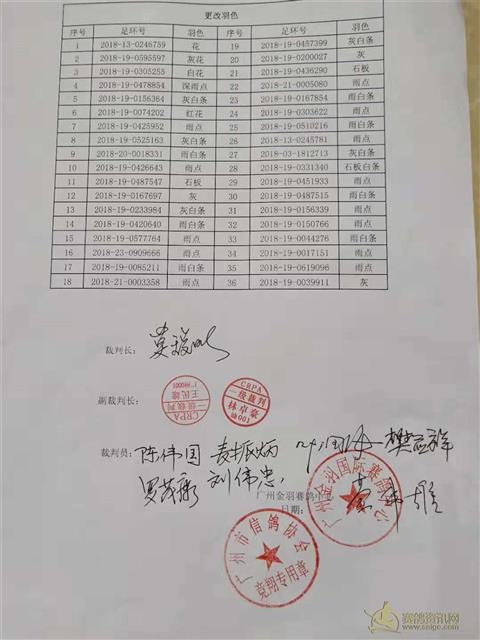 更改羽色
序号 足环号 羽色 序号 足环号 羽色
1 2018-13-0246759 花 19 2018-19-0457399 灰白条
2 2018-19-0595597 灰花 20 2018-19-0200027 灰
3 2018-19-0305255 白花 21 2018-19-0436290 石板
4 2018-19-0478854 深雨点 22 2018-21-0005080 雨点
5 2018-19-0156364 灰白条 23 2018-19-0167854 雨白条
6 2018-19-0074202 红花 24 2018-19-0303622 雨点
7 2018-19-0425952 雨点 25 2018-19-0510216 雨白条
8 2018-19-0525163 灰白条 26 2018-13-0245781 雨点
9 2018-20-0018331 雨白条 27 2018-03-1812713 灰白条
10 2018-19-0426643 雨点 28 2018-19-0331340 石板白条
11 2018-19-0487547 石板 29 2018-19-0451933 雨点
12 2018-19-0167697 灰 30 2018-19-0487515 雨白条
13 2018-19-0233984 灰白条 31 2018-19-0156339 雨点
14 2018-19-0420640 雨白条 32 2018-19-0150766 雨点
15 2018-19-0577764 雨点 33 2018-19-0044276 雨白条
16 2018-23-0909666 雨点 34 2018-19-0017151 雨点
17 2018-19-0085211 雨白条 35 2018-19-0619096 雨点
18 2018-21-0003358 雨点 36 2018-19-0039911 灰
裁判长：
副裁判长：
CRPA
一级裁判
王民雄
广州0001
CRPA
一级裁判
林卓豪
穗001
裁判员：陈伟国
刘伟忠
广州金羽赛鸽中心
日期：
广州金羽国际赛鸽中心
广州市信鸽协会
竞翔专用章
赛鸽资讯网
www.saige.com